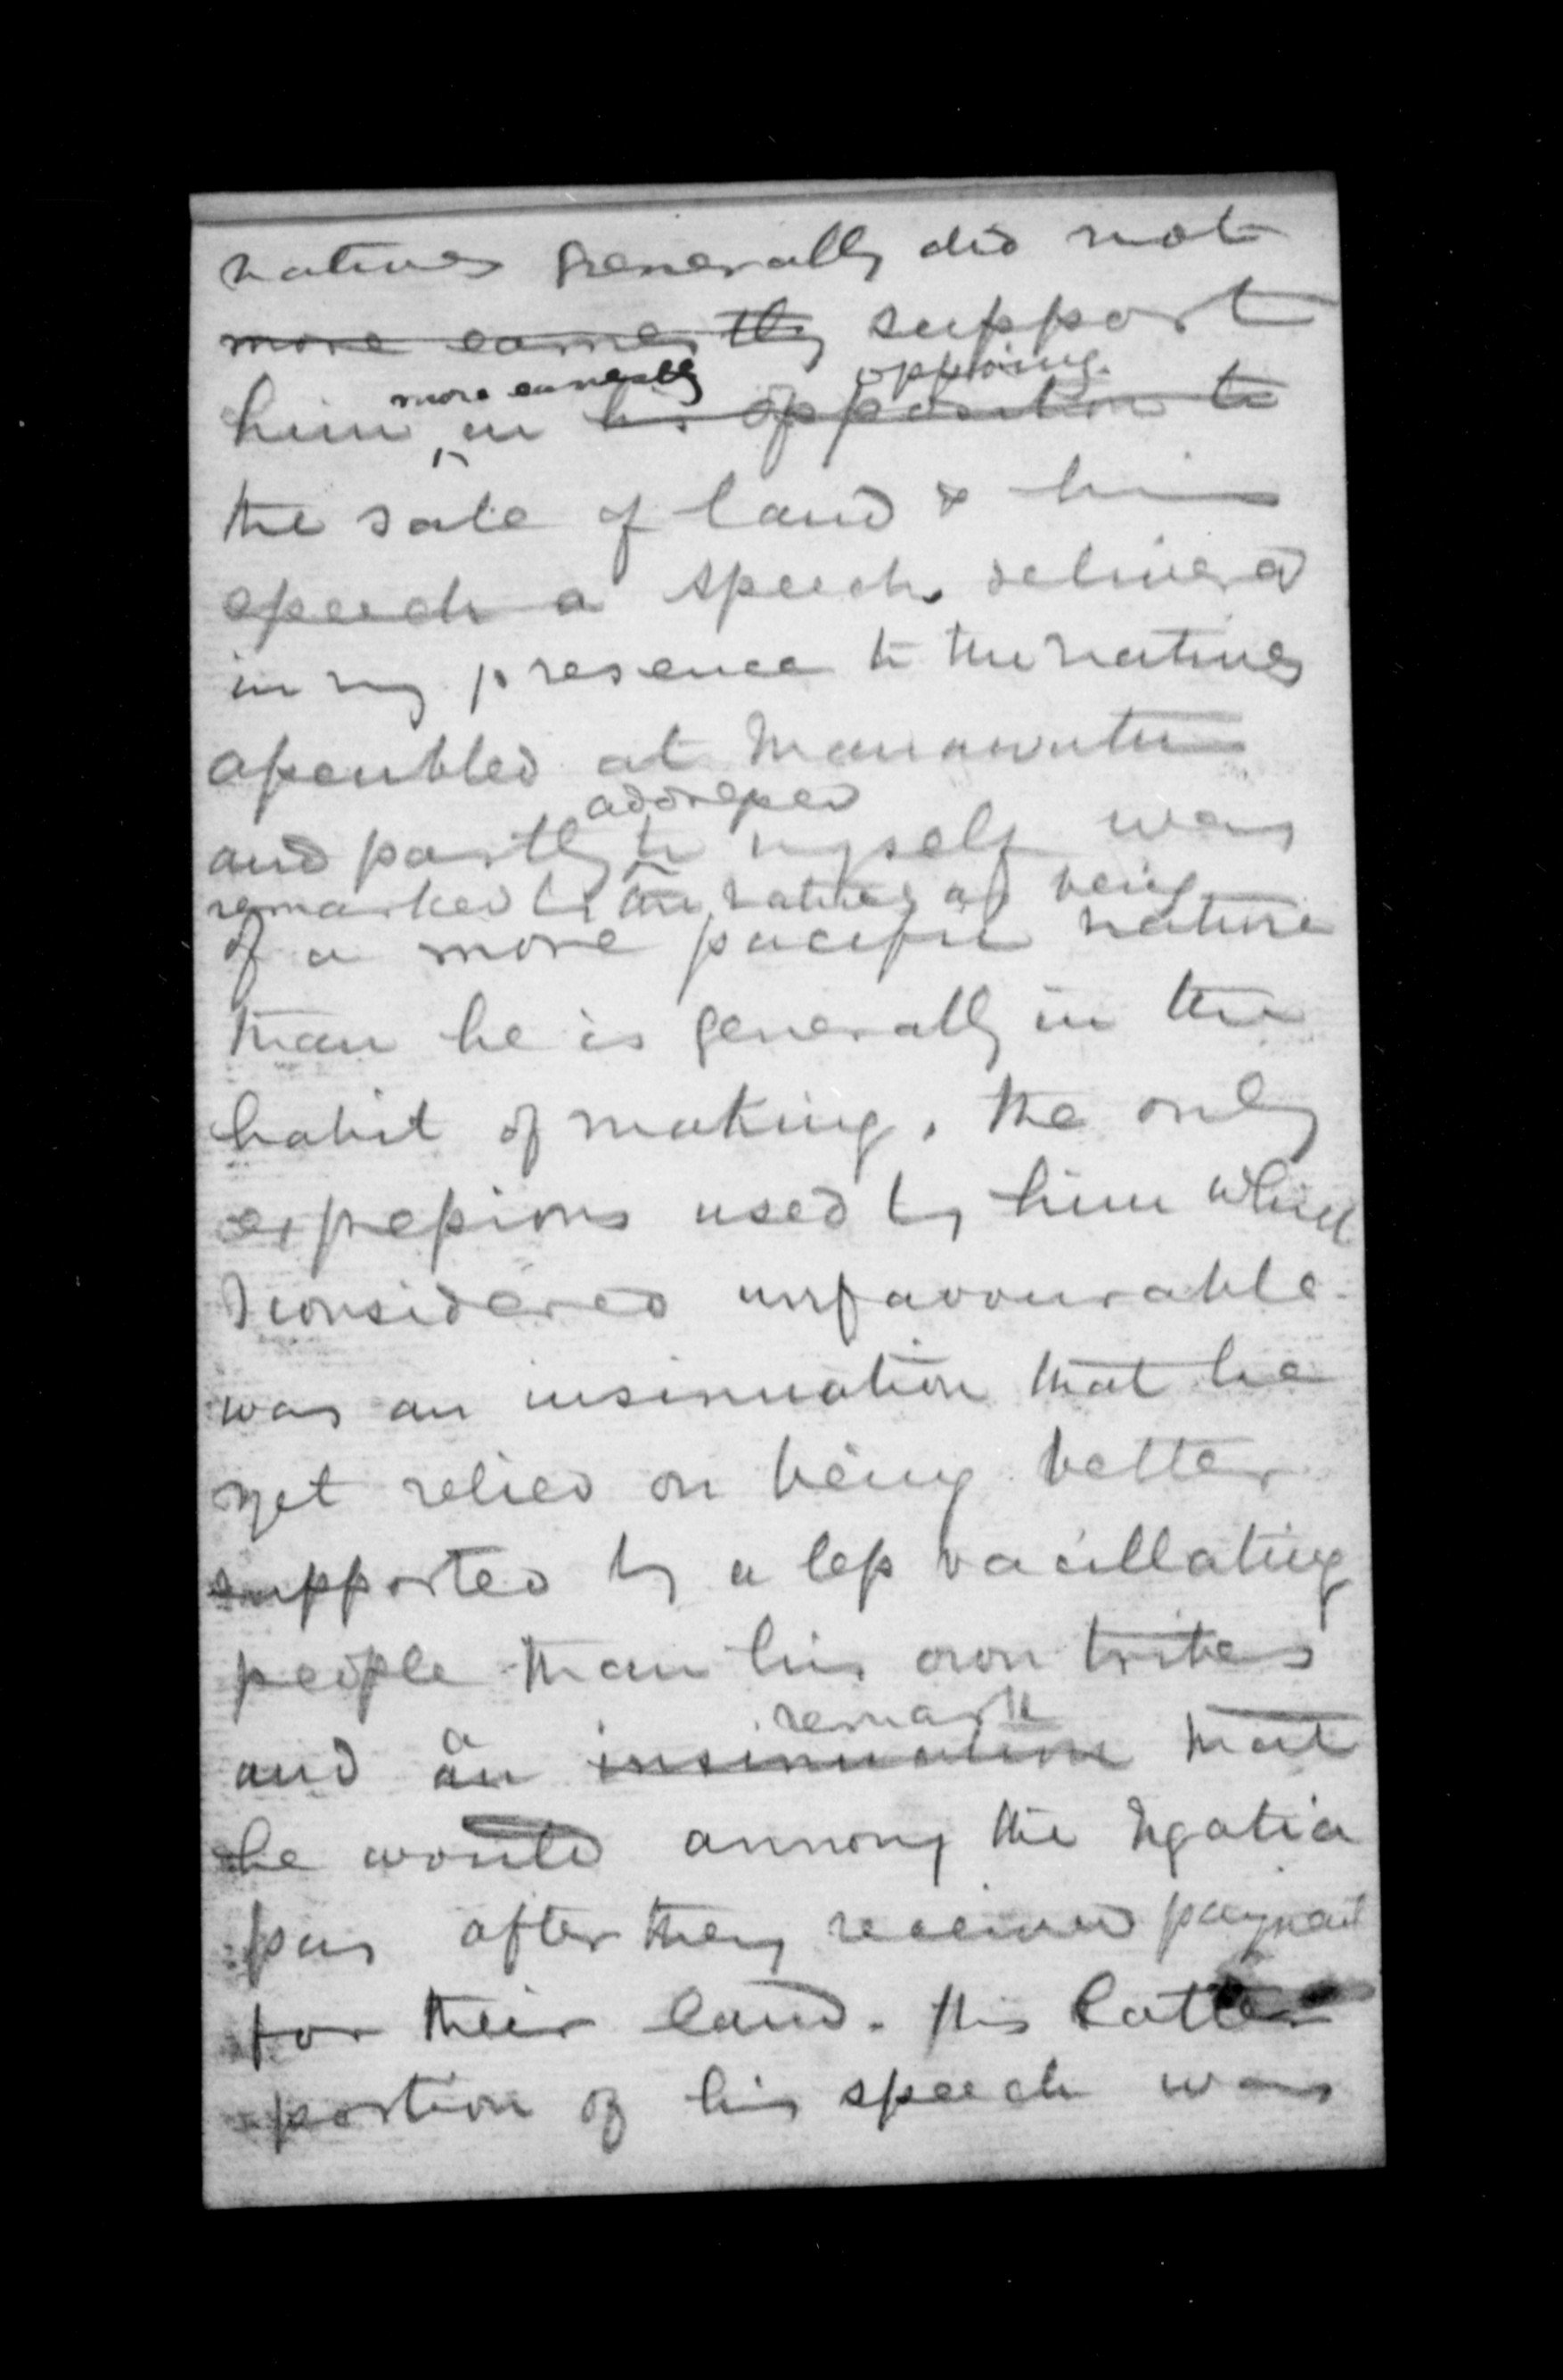 natives generally did not
more earnestly support
more earnestly opposing
him in his opposition to
the sale of land & his
speech a speech delivered
in my presence to the natives
assembled at Manawatu
addressed
and partly to myself was
remarked by the natives as being
of a more pacific nature
than he is generally in the
habit of making. The only
expressions used by him which
I considered unfavourable
was an insinuation that he
yet relied on being better
supported by a less vacillating
people than his own tribes
a remark
and an insinuation that
he would annoy the Ngatia
pas after they received payment
for their land. This latter
portion of his speech was